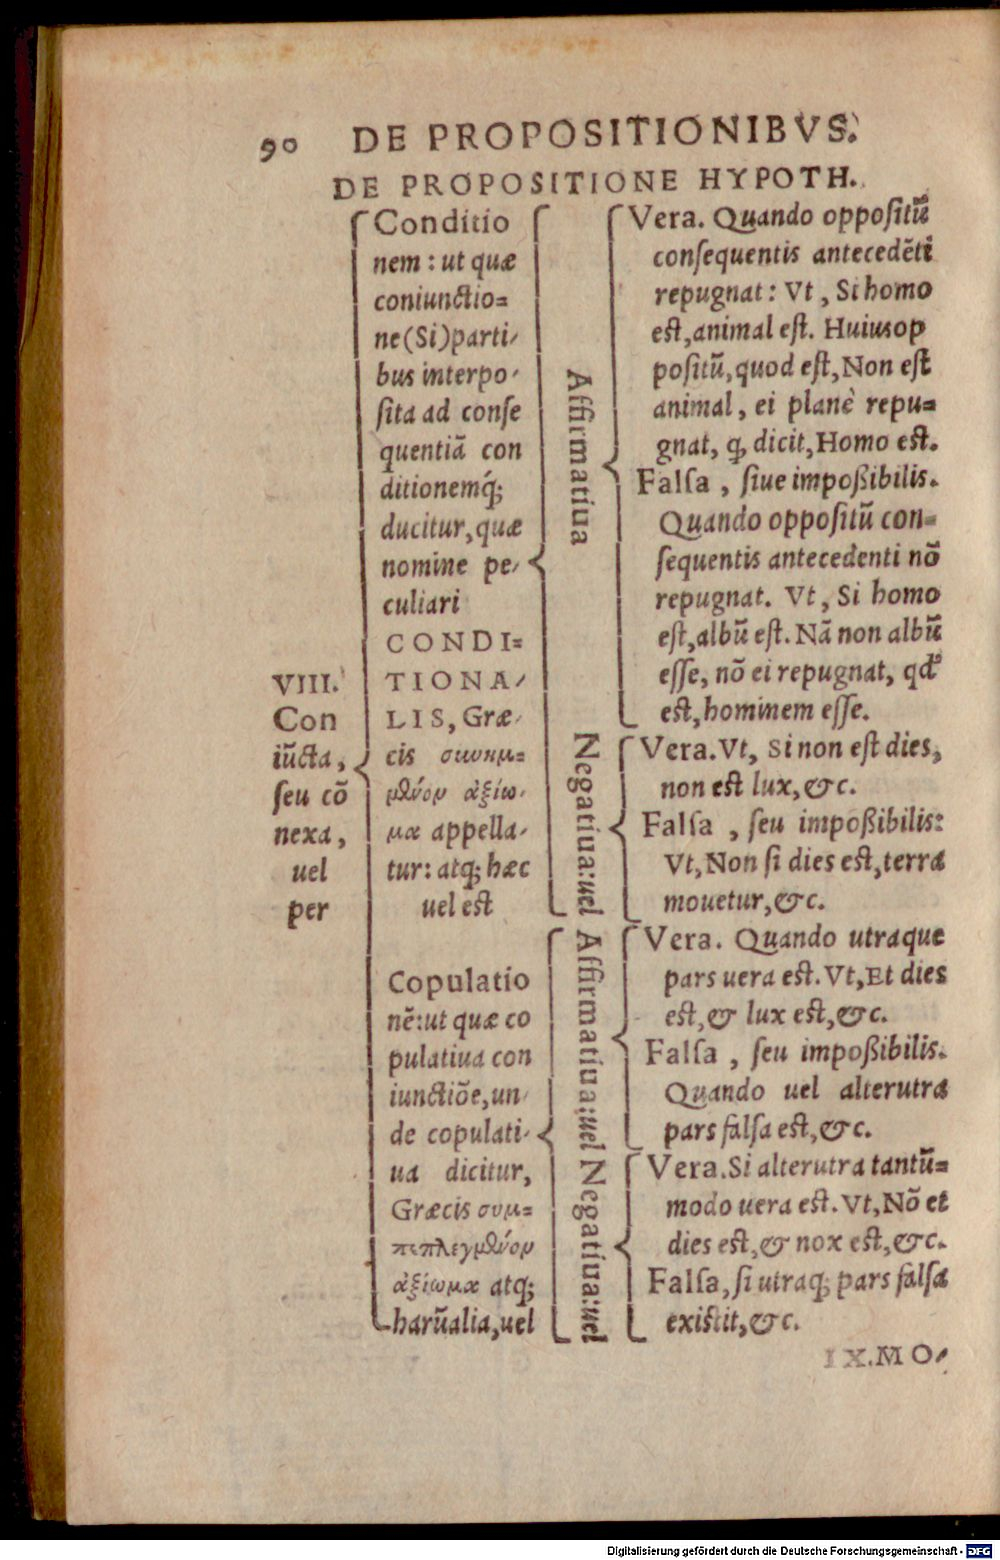 90 DE PROPOSITIONIBVS.
DE PROPOSITIONE HYPOTH.
VIII.
Con
iũcta,
seu cõ
nexa,
uel
per
Conditio
nem: ut quæ
coniunctio=
ne (Si) parti-
bus interpo-
sita ad conse
quentiã con
ditionemq́;
ducitur, quæ
nomine pe-
culiari
CONDI=
TIONA-
LIS, Græ-
cis συνημ=
μένον ἀξίω-
μα appella-
tur: atq; hæc
uel est
Affirmatiua
Vera. Quando oppositũ
consequentis antecedẽti
repugnat: Vt, Si homo
est, animal est. Huius op
positũ, quod est, Non est
animal, ei planè repu=
gnat, q̃ dicit, Homo est.
Falsa, siue impoßibilis.
Quando oppositũ con=
sequentis antecedenti nõ
repugnat. Vt, Si homo
est, albũ est. Nã non albũ
esse, nõ ei repugnat, qd'
est, hominem esse.
Negatiua: uel
Vera. Vt, Si non est dies,
non est lux, &c.
Falsa, seu impoßibilis:
Vt, Non si dies est, terra
mouetur, &c.
Copulatio
nẽ: ut quæ co
pulatiua con
iunctiõe, un-
de copulati-
ua dicitur,
Græcis συμ=
πεπλεγμένον
ἀξίωμα atq;
harũ alia, uel
Affirmatiua: uel
Vera. Quando utraque
pars uera est. Vt, Et dies
est, & lux est, &c.
Falsa, seu impoßibilis.
Quando uel alterutra
pars falsa est, &c.
Negatiua: uel
Vera. Si alterutra tantũ=
modo uera est. Vt, Nõ et
dies est, & nox est, &c.
Falsa, si utraq; pars falsa
existit, &c.
IX. MO-
Digitalisierung gefördert durch die Deutsche Forschungsgemeinschaft - DFG